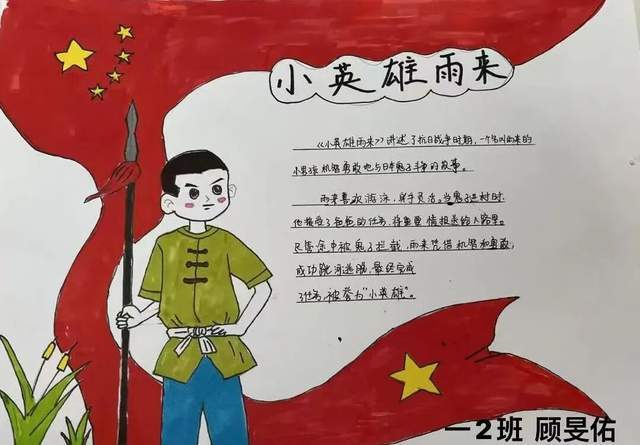 小英雄雨来
《小英雄雨来》讲述了抗日战争时期，一个名叫雨来的
小男孩机智勇敢地与日本鬼子斗争的故事。
雨来喜欢游泳，身手灵活。当鬼子进村时
他接受了爸爸的任务，将重要情报送给八路军。
尽管途中被鬼子拦截，雨来凭借机智和勇敢，
成功跳河逃脱，最终完成
了任务，被誉为"小英雄"。
一2班 顾旻佑